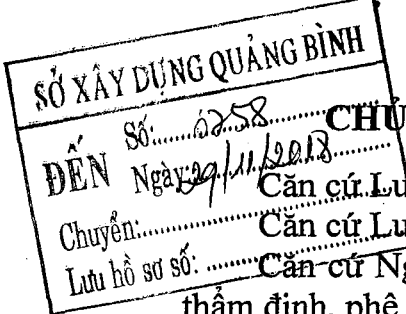 SỞ XÂY DỰNG QUẢNG BÌNH
ĐẾN
Số:.......6258..........
Ngày:29/11/2018
Chuyển:..................
Lưu hồ sơ số: ..........
CHỦ
Căn cứ Lu
Căn cứ Lu
Căn cứ Ng
thẩm định, phê